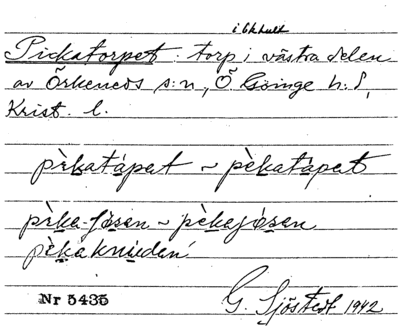 i Ekhult
Pickatorpet : torp i västra delen
av Örkeneds s:n, Ö Göinge h:d,
Krist. l.
pìkatápat ~ pèkatápat
pìka-jósen ~ pèkajósen
pèkaknieden
Nr 5435
G. Sjöstedt 1942